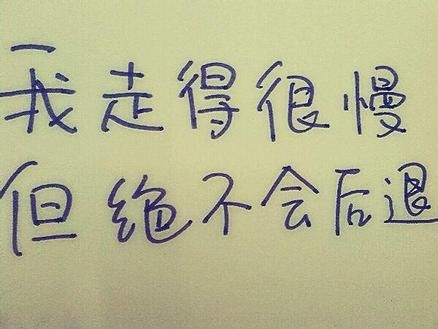 我走得很慢
但绝不会后退